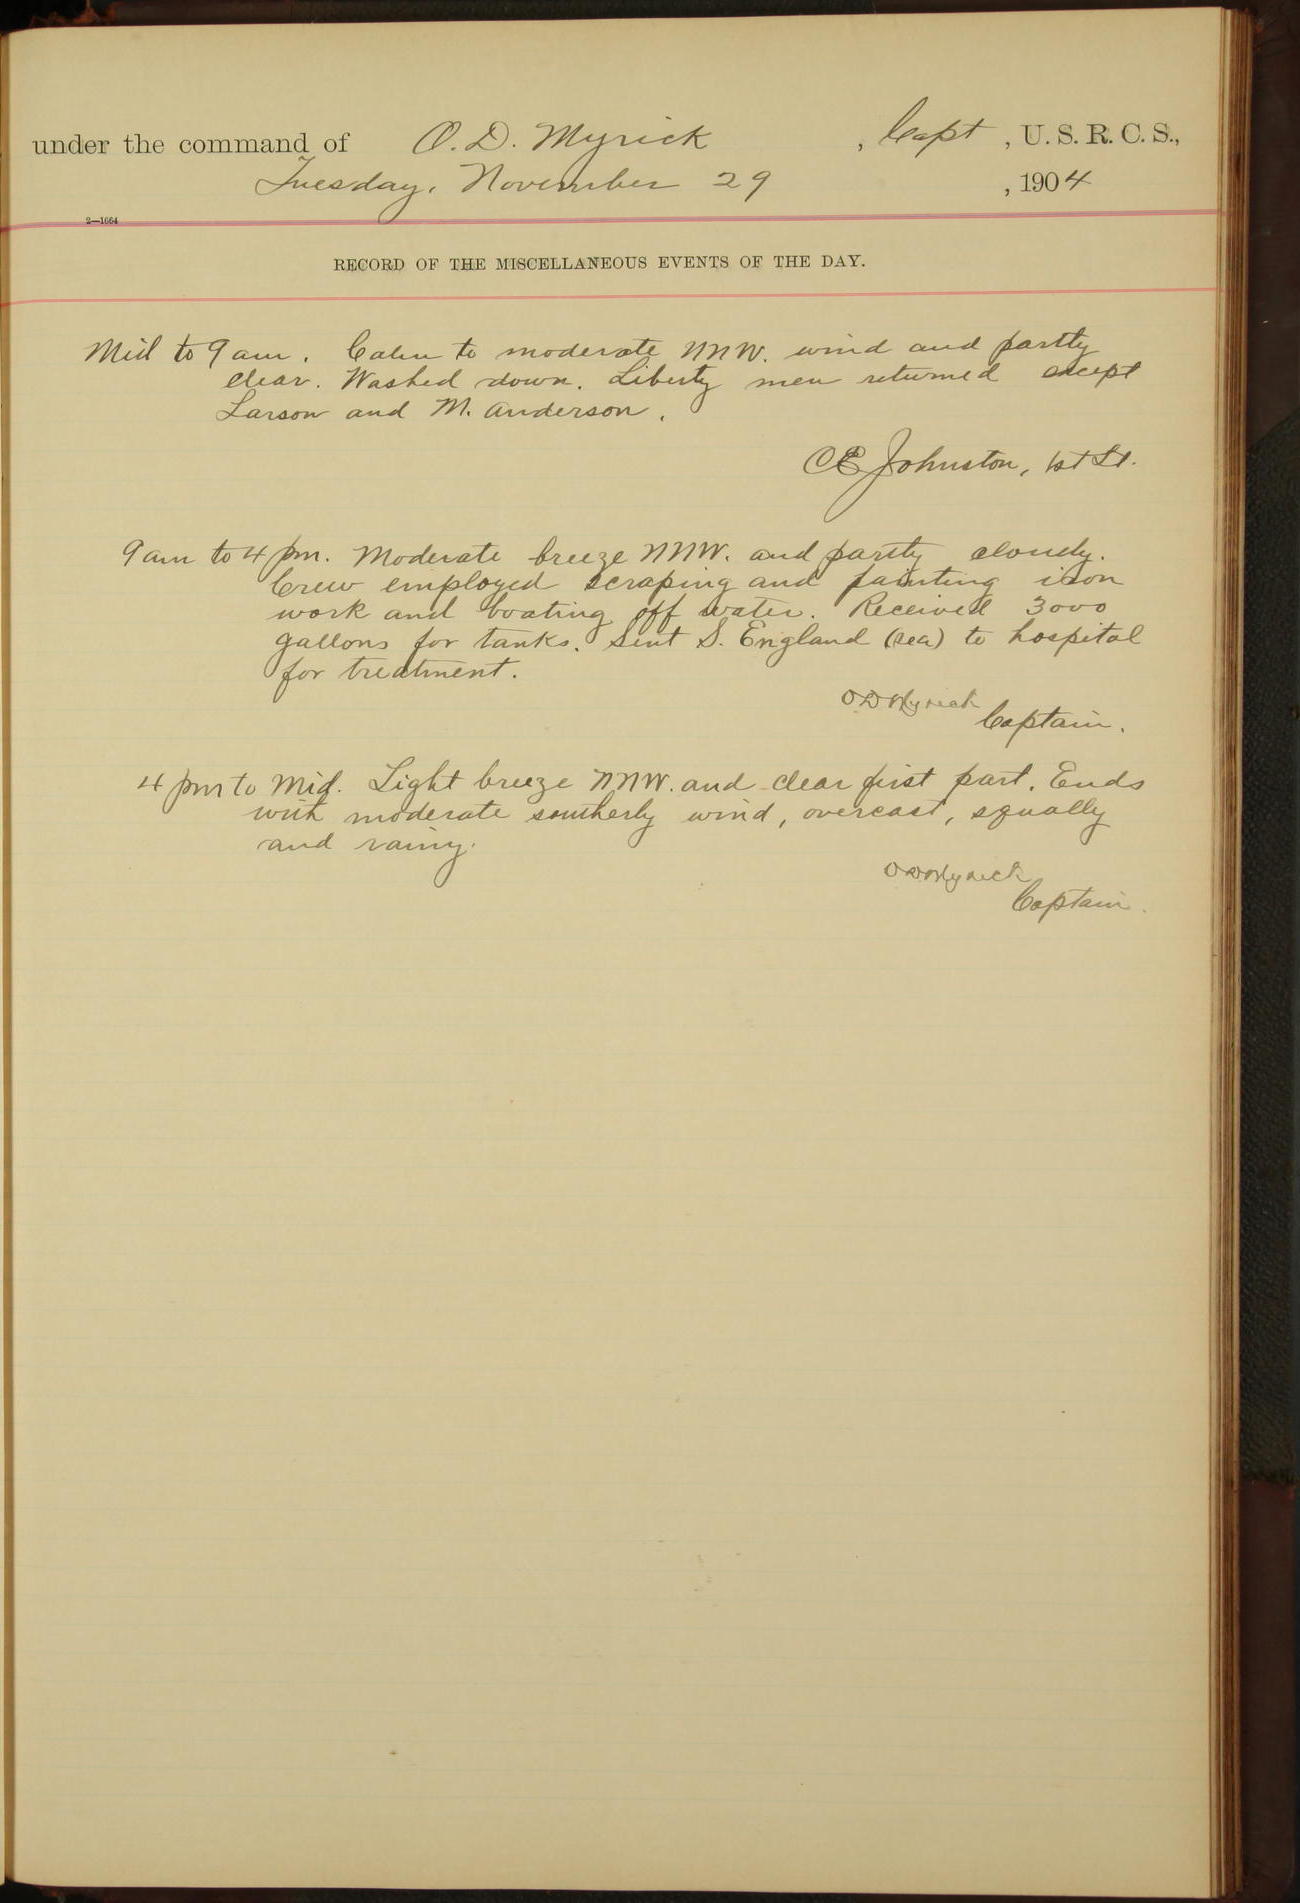 under the command of O. D. Myrick , Capt , U. S. R. C. S.,
Tuesday, November 29 , 1904
2—1664
RECORD OF THE MISCELLANEOUS EVENTS OF THE DAY.
Mid to 9 am. Calm to moderate NNW. wind and partly
clear. Washed down. Liberty men returned except
Larson and M. Anderson.
CE Johnston, 1st Lt.
9 am to 4 pm. Moderate breeze NNW. and partly cloudy.
Crew employed scraping and painting iron
work and boating off water. Received 3000
gallons for tanks. Sent S. England (sea) to hospital
for treatment.
O D Myrick
Captain.
4 pm to Mid. Light breeze NNW. and clear first part. Ends
with moderate southerly wind, overcast, squally
and rainy.
O D Myrick
Captain.